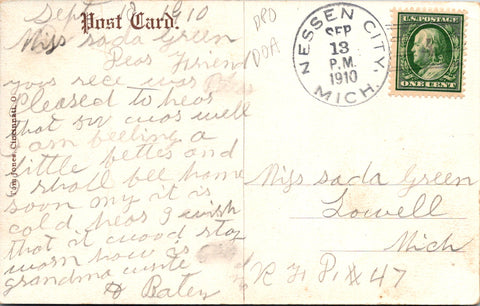 Sept 13, 1910
Post Card.
Miss sada Green
Dear Friend
yous rece was
Pleased to heas
that or was well
am beeling a
little bettes and
shall bee home
soon my it is
cold heas I wish
that it wood stay
worm how is
grandma write
Bates
DPO
DOA
NESSEN CITY,
SEP
13
P.M.
1910
MICH.
U.S. POSTAGE
ONE CENT
Miss sada Green
Lowell
Mich
47
Cincinnati, O.